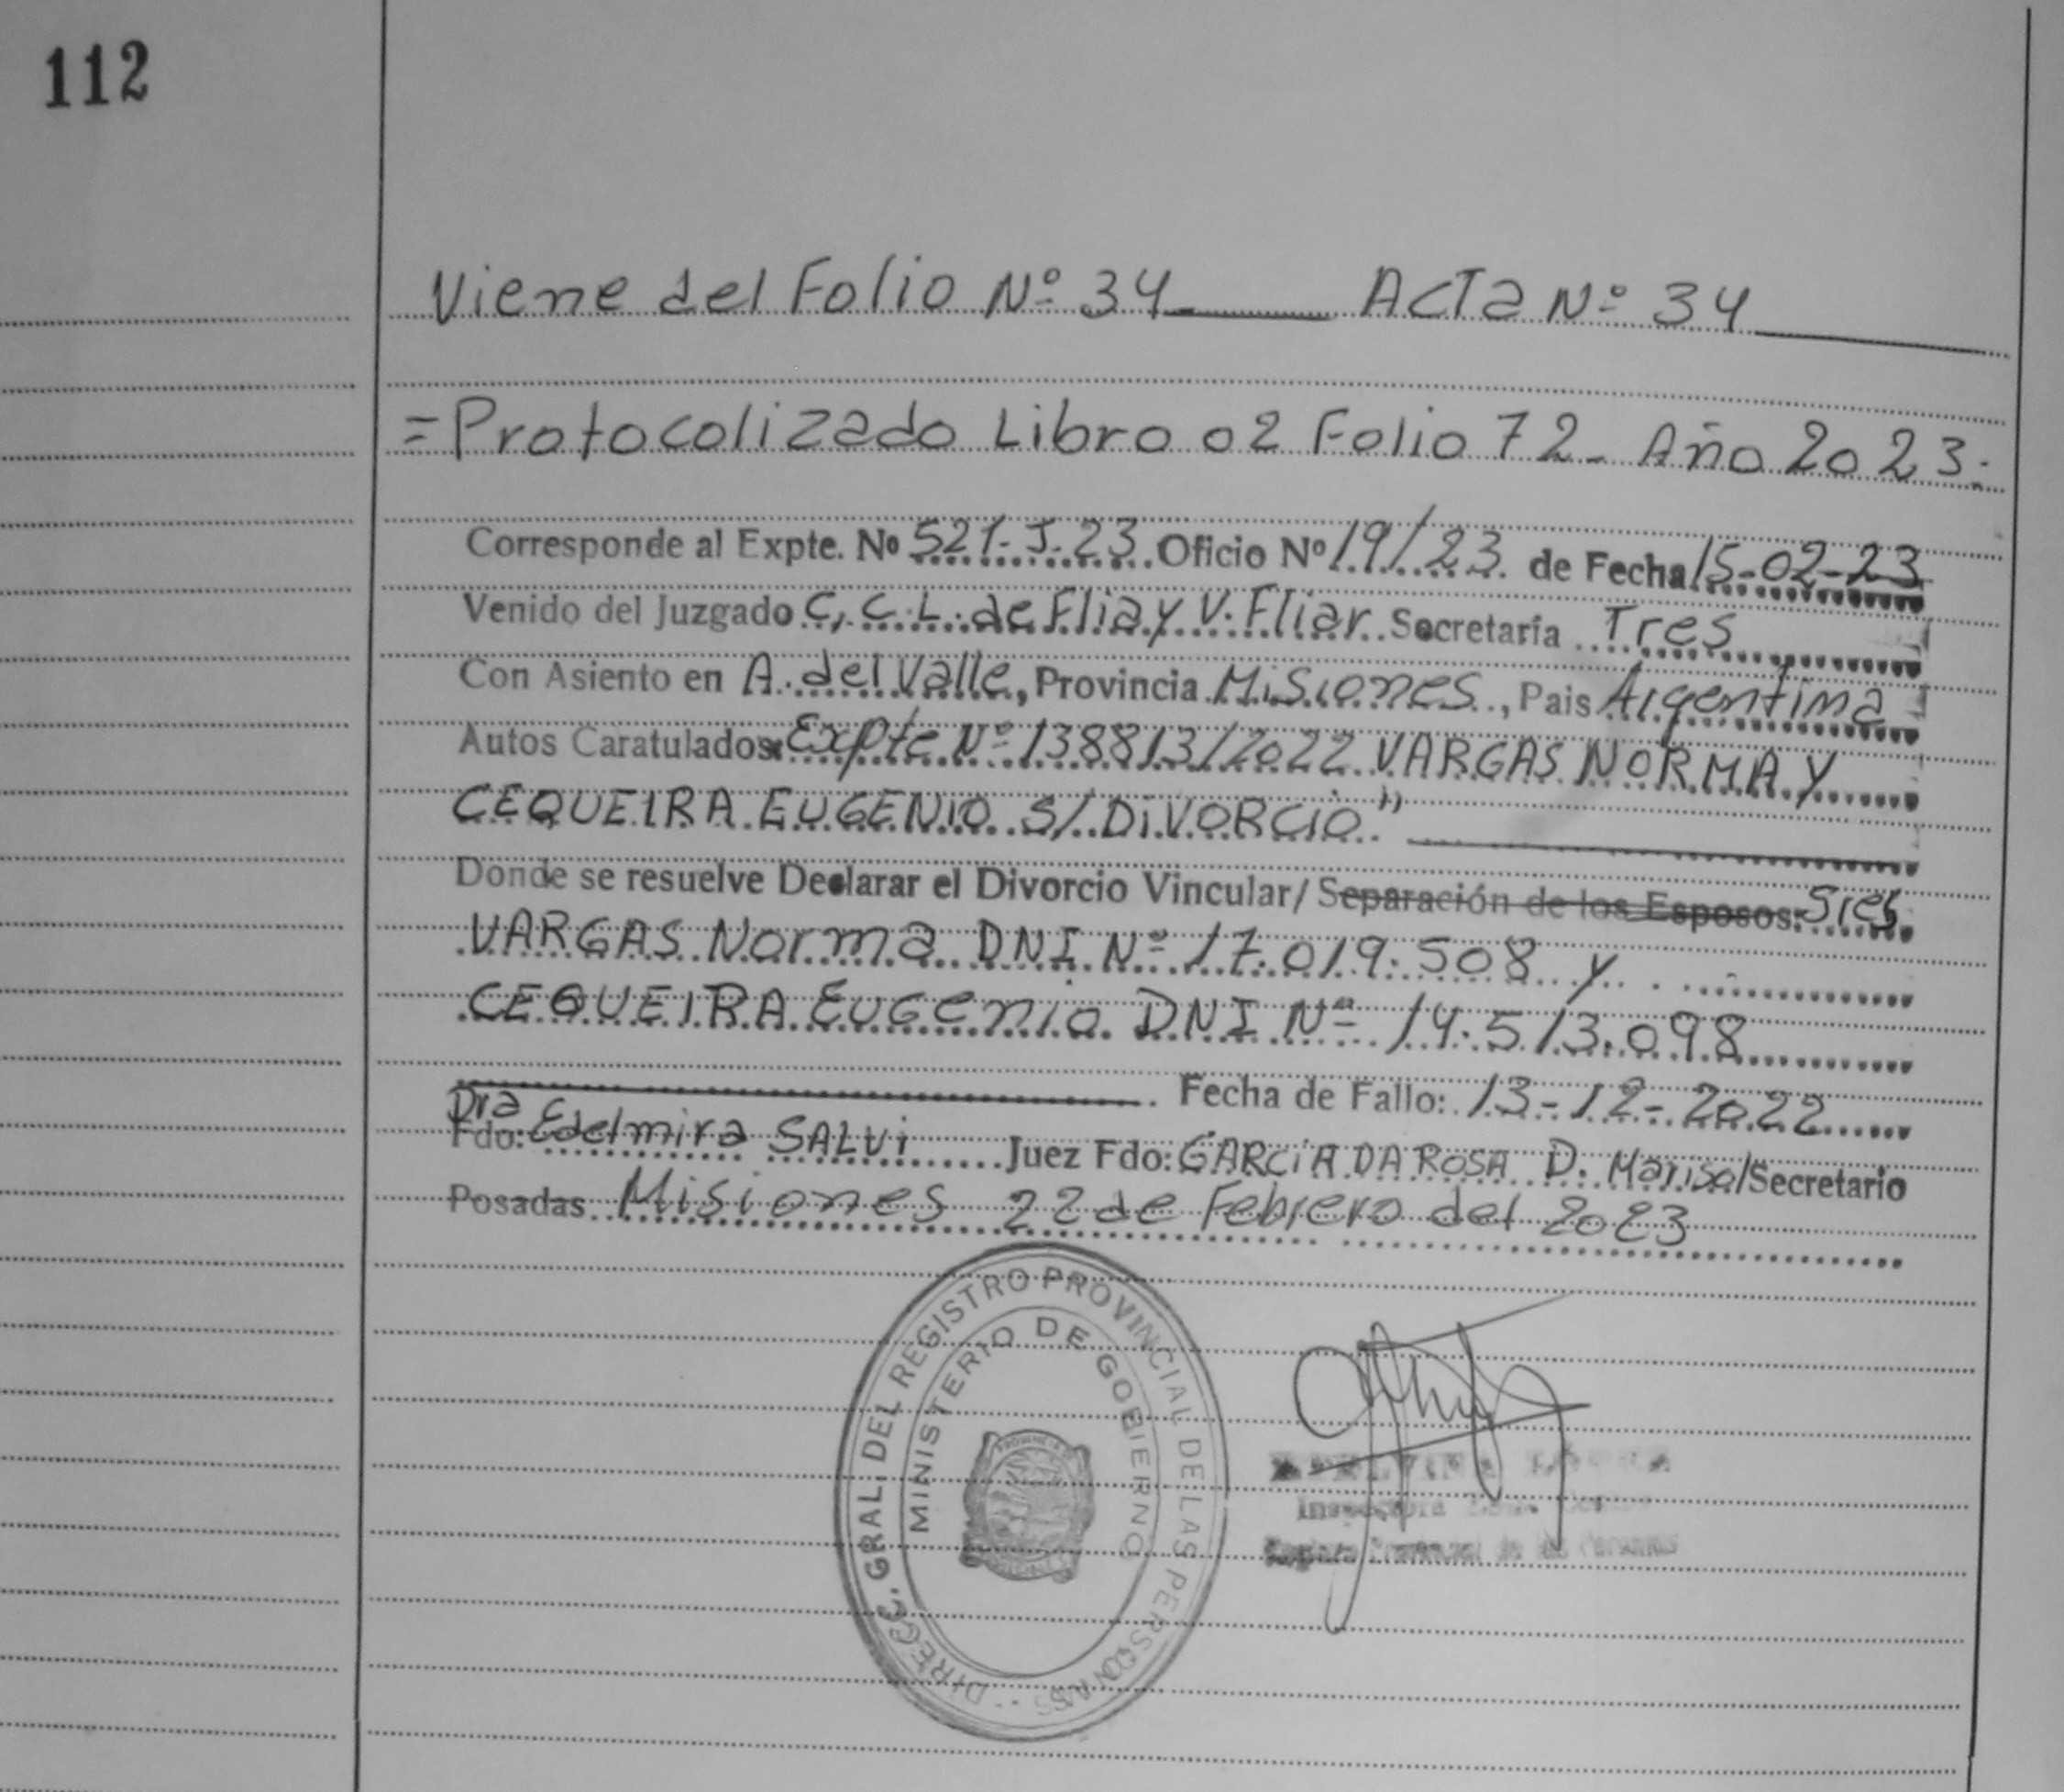 112
Viene del Folio Nº 34 Acta Nº 34
= Protocolizado Libro 02 Folio 72 - Año 2023.
Corresponde al Expte. Nº 521-J-23 Oficio Nº 19/23 de Fecha 15-02-23
Venido del Juzgado C, C. L. de Flia y V. Fliar Secretaría Tres
Con Asiento en A. del Valle, Provincia Misiones, Pais Argentina
Autos Caratulados: Expte Nº 138813/2022 VARGAS NORMA Y
CEQUEIRA EUGENIO S/ DIVORCIO."
Donde se resuelve Declarar el Divorcio Vincular/ Separación de los Esposos: Sres
VARGAS Norma DNI Nº 17.019.508 y
CEQUEIRA EUGenio DNI Nº 14.513.098
Fecha de Fallo: 13-12-2022
Dra
Fdo: Edelmira SALVI Juez Fdo: GARCÍA DA ROSA D. Marisol Secretario
Posadas Misiones 22 de Febrero del 2023
DIREC. GRAL. DEL REGISTRO PROVINCIAL DE LAS PERSONAS
MINISTERIO DE GOBIERNO
Inspectora
Registro Provincial de las Personas